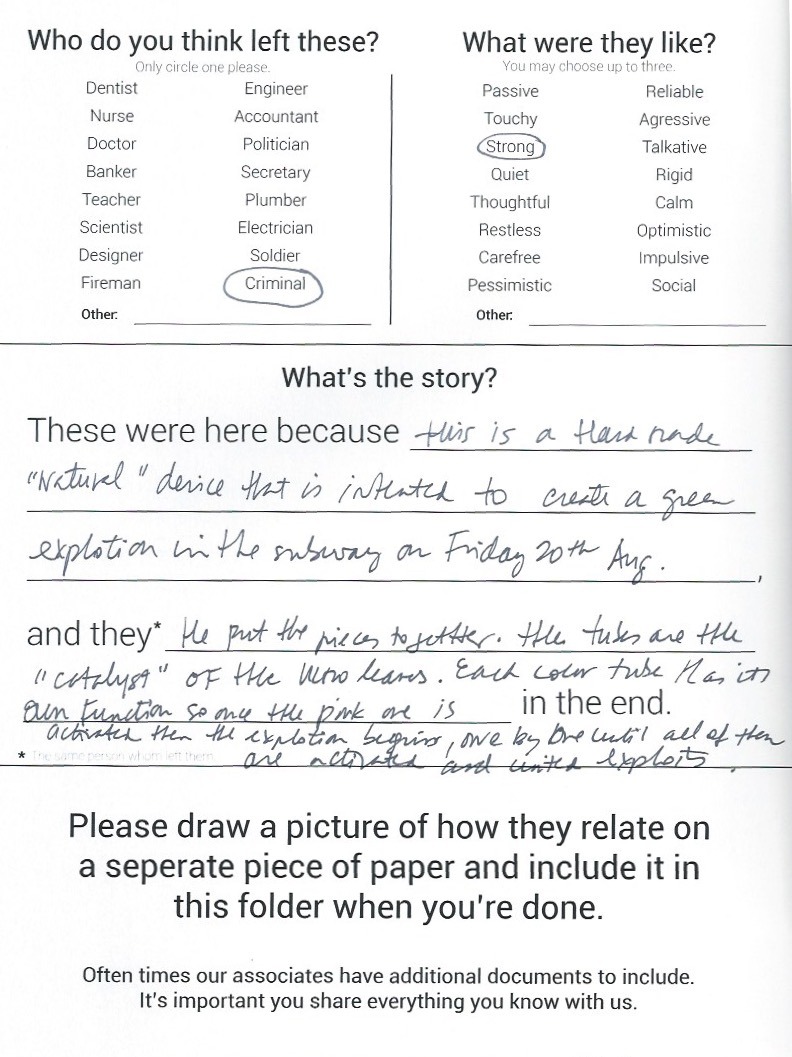 Who do you think left these?
Only circle one please.
Dentist Engineer
Nurse Accountant
Doctor Politician
Banker Secretary
Teacher Plumber
Scientist Electrician
Designer Soldier
Fireman Criminal
Other:
What were they like?
You may choose up to three.
Passive Reliable
Touchy Agressive
Strong Talkative
Quiet Rigid
Thoughtful Calm
Restless Optimistic
Carefree Impulsive
Pessimistic Social
Other:
What's the story?
These were here because this is a Hand made
"Natural" device that is intented to create a green
explotion in the subway on Friday 20th Aug.
,
and they* He put the pieces together. The tubes are the
"catalyst" OF the leaves. Each color tube Has its
own function so once the pink one is in the end.
activated then the explotion begins, one by one until all of them
* The same person whom left them. are activated and united
Please draw a picture of how they relate on
a seperate piece of paper and include it in
this folder when you're done.
Often times our associates have additional documents to include.
It's important you share everything you know with us.